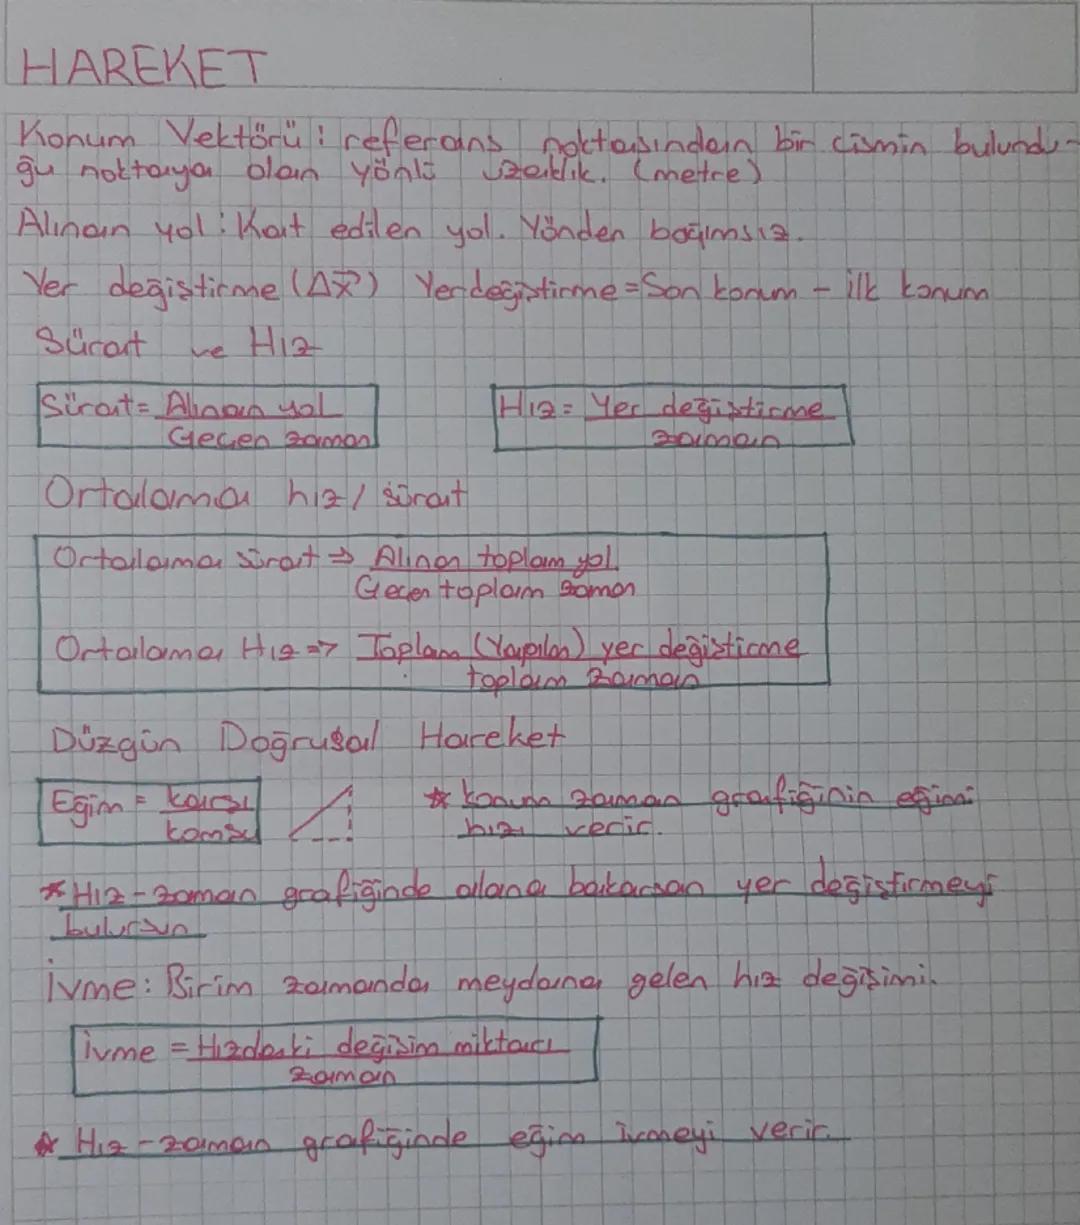 HAREKET
Konum Vektörü: referans noktasından bir cismin bulundu-
ğu noktaya olan yönlü uzaklık. (metre)
Alınan yol: Kat edilen yol. Yönden bağımsız.
Yer değiştirme (Δx⃗) Yerdeğiştirme = Son konum - ilk konum
Sürat ve Hız
Sürat = Alınan yol
Geçen zaman
Hız = Yer değiştirme
zaman
Ortalama hız / sürat
Ortalama sürat ⇒ Alınan toplam yol
Geçen toplam zaman
Ortalama Hız ⇒ Toplam (Yapılan) yer değiştirme
toplam zaman
Düzgün Doğrusal Hareket
Eğim = karşı
komşu
* konum zaman grafiğinin eğimi
hızı verir.
* Hız-zaman grafiğinde alana bakarsan yer değiştirmeyi
bulursun
İvme: Birim zamanda meydana gelen hız değişimi.
İvme = Hızdaki değişim miktarı
zaman
* Hız-zaman grafiğinde eğim ivmeyi verir.